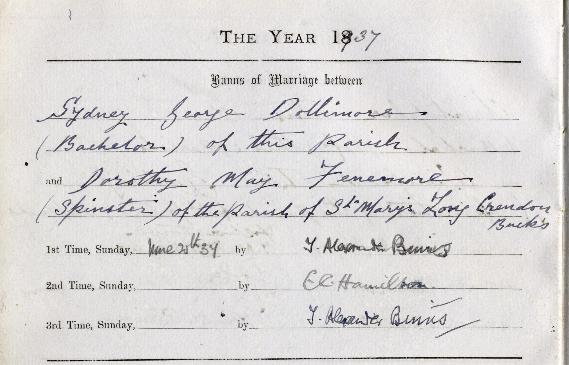 THE YEAR 1937
Banns of Marriage between
Sydney George Dollimore
(Bachelor) of this Parish
and Dorothy May Fenemore
(Spinster) of the Parish of St Mary's Long Crendon
Bucks
1st Time, Sunday, June 20th 37 by J. Alexander Binns
2nd Time, Sunday, by E C Hamilton
3rd Time, Sunday, by J. Alexander Binns